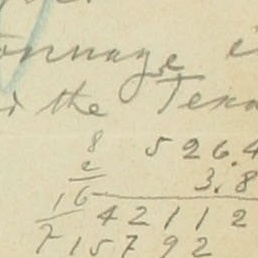 onnage
the Texa
8 526.4
2 3.8
16 42112
7 15792